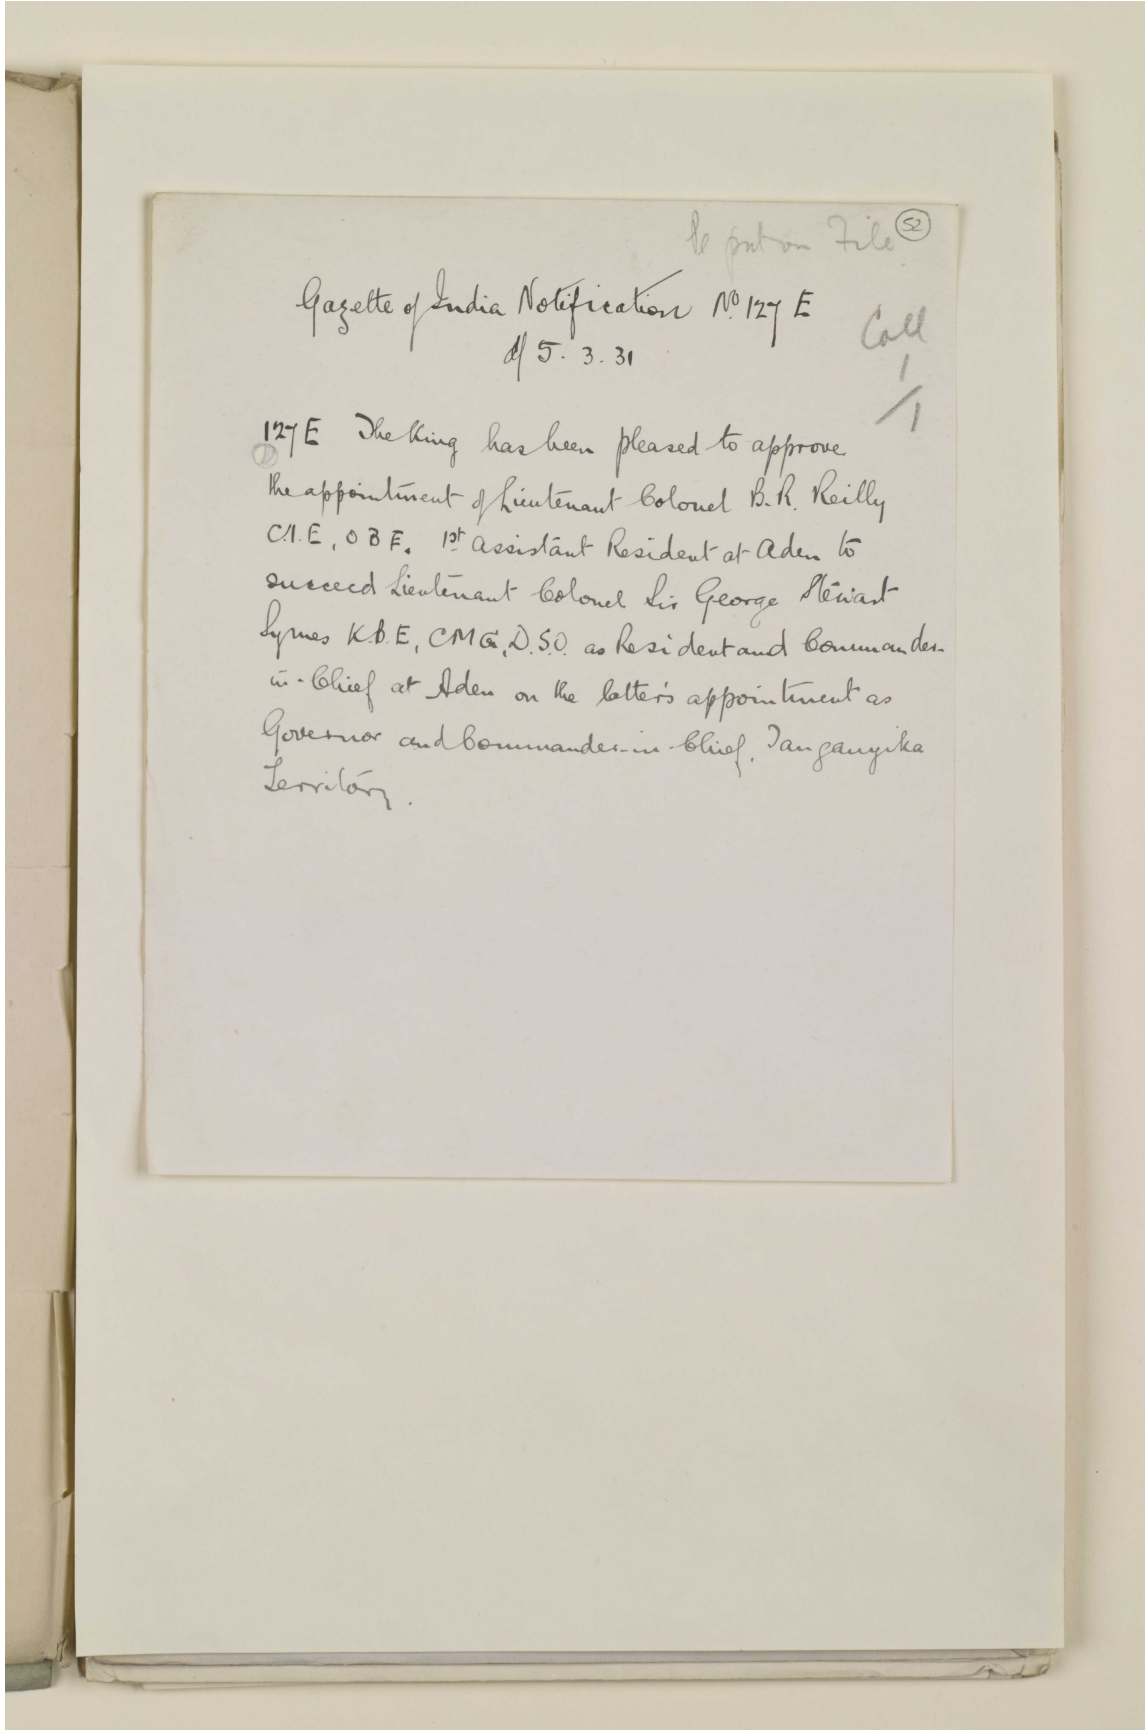 Be put on File 52
Gazette of India Notification No. 127 E
d/ 5. 3. 31
Coll
1
/1
127 E The King has been pleased to approve
the appointment of Lieutenant Colonel B. R. Reilly
C.I.E, O B E. 1st Assistant Resident at Aden to
succeed Lieutenant Colonel Sir George Stewart
Symes K.B.E, CMG, D.S.O. as Resident and Commander-
in-Chief at Aden on the latter's appointment as
Governor and Commander-in-Chief, Tanganyika
Territory.